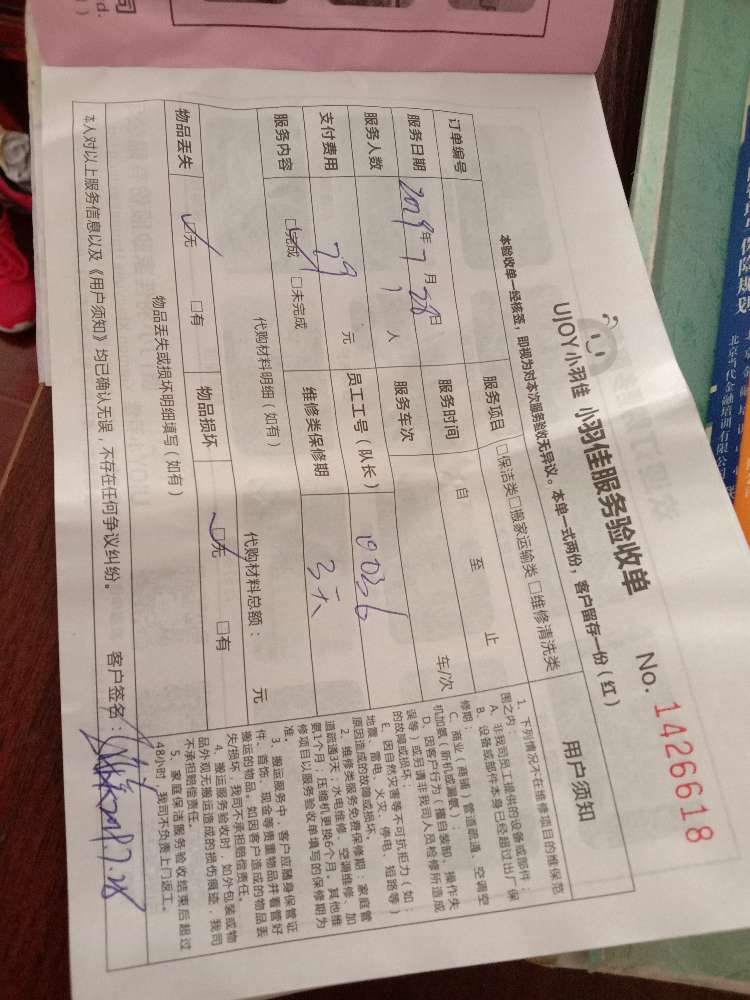 UJOY 小羽佳 小羽佳服务验收单
No. 1426618
本验收单一经核签，即视为对本次服务验收无异议。本单一式两份，客户留存一份（红）
订单编号
服务项目 □保洁类□搬家运输类 □维修清洗类
服务日期 年 7 月 28 日
服务时间 自 至 止
服务人数 1 人
服务车次 车/次
支付费用 79 元
员工工号（队长） 10036
服务内容 □完成 □未完成
维修类保修期 3天
代购材料明细（如有）
代购材料总额： 元
物品丢失 □无 □有
物品损坏 □无 □有
物品丢失或损坏明细填写（如有）
本人对以上服务信息以及《用户须知》均已确认无误，不存在任何争议纠纷。
客户签名： 7.28
用户须知
1、下列情况不在维修项目的维保范
围之内：
A、非我司员工提供的设备或部件；
B、设备或部件本身已经超过出厂保
修期；
C、商业（商铺）管道疏通、空调空
机加氨（新机或漏氨）；
D、因客户行为（擅自装卸、操作失
误等）或另请非我司人员检修所造成
的故障或损坏；
E、因自然灾害等不可抗拒力（如：
地震、雷电、火灾、停电、短路等）
原因造成的故障或损坏。
2、维修类服务免费保修期：家庭管
道疏通3天；水电维修、空调维修、加
氨1个月，压缩机更换6个月。其他维
修项目以服务验收单填写的保修期为
准。
3、搬运服务中，客户应随身保管证
件、首饰、现金等贵重物品并看管好
搬运的物品。如因客户造成的物品丢
失/损坏，我司不承担赔偿责任。
4、搬运服务验收时，如外包装或物
品外观无搬运造成的损伤痕迹，我司
不承担赔偿责任。
5、家庭保洁服务验收结束后超过
48小时，我司不负责上门返工。
司
d.
保险规划
北京当代金融培训有限公司